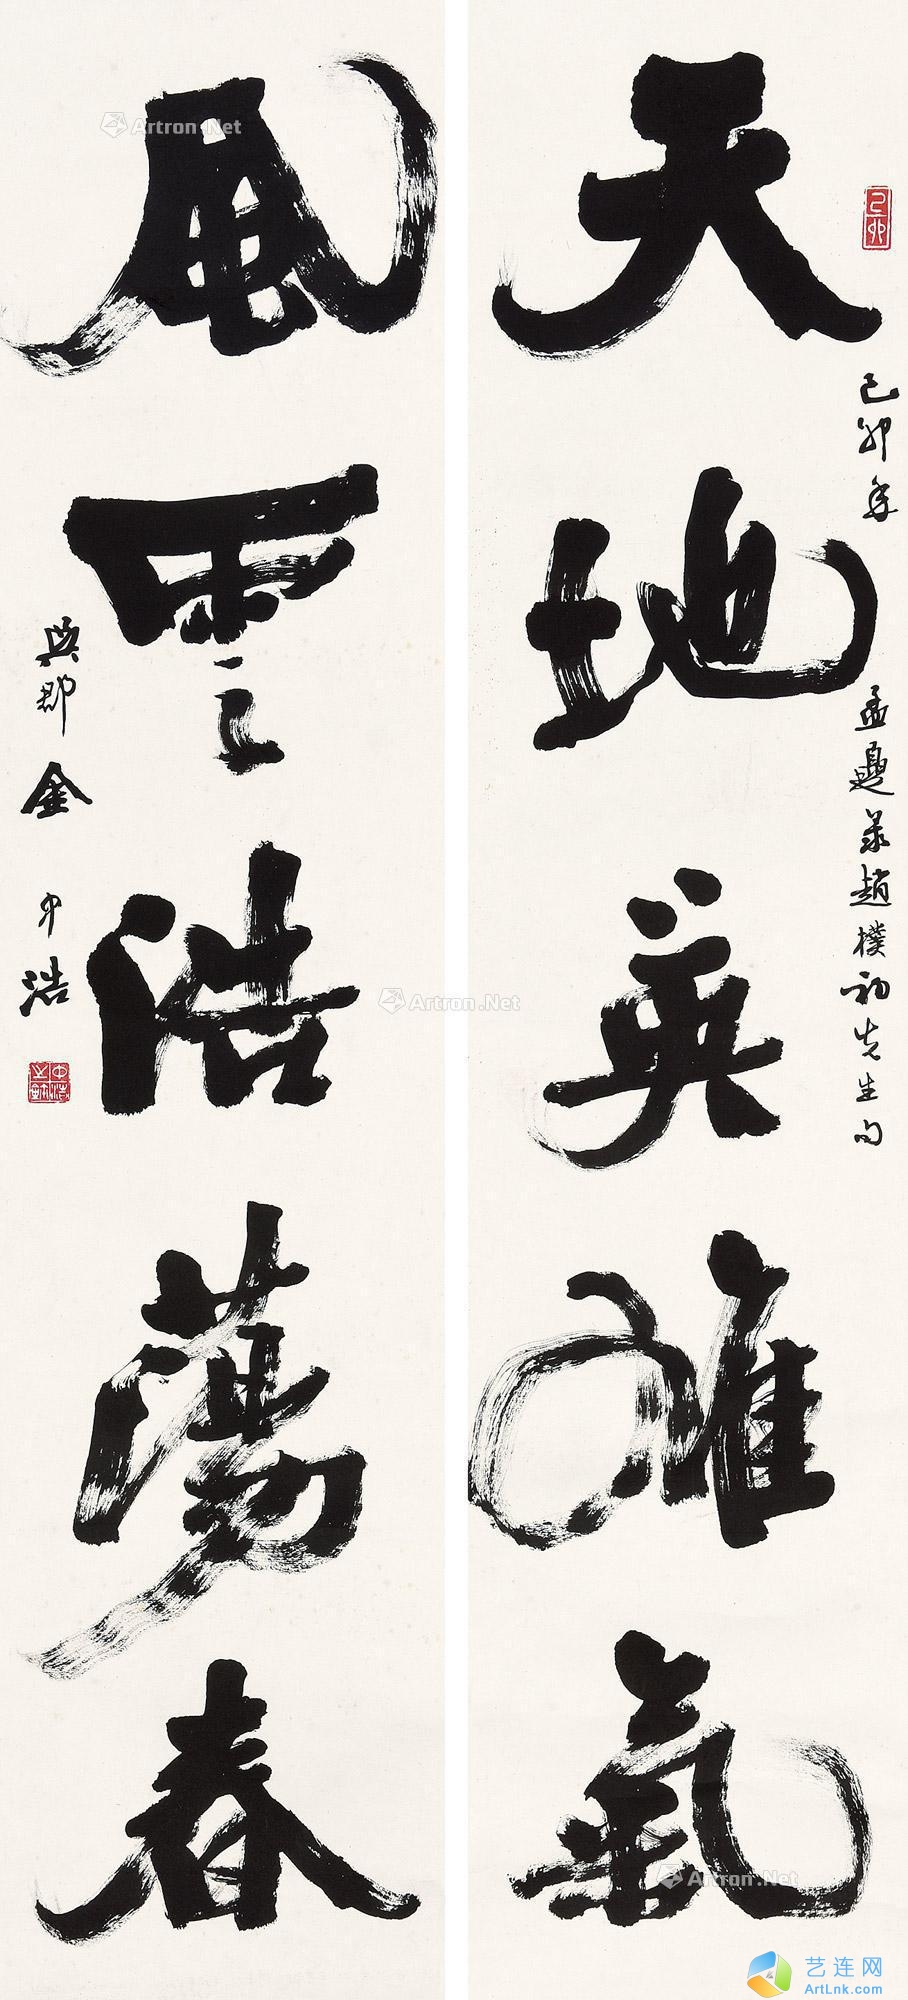 天地英雄氣
己卯
己卯年 孟夏录趙樸初先生句
風雲浩蕩春
吳郡金中浩
Artron.Net
Artron.Net
Artron.Net
艺连网
ArtLnk.com